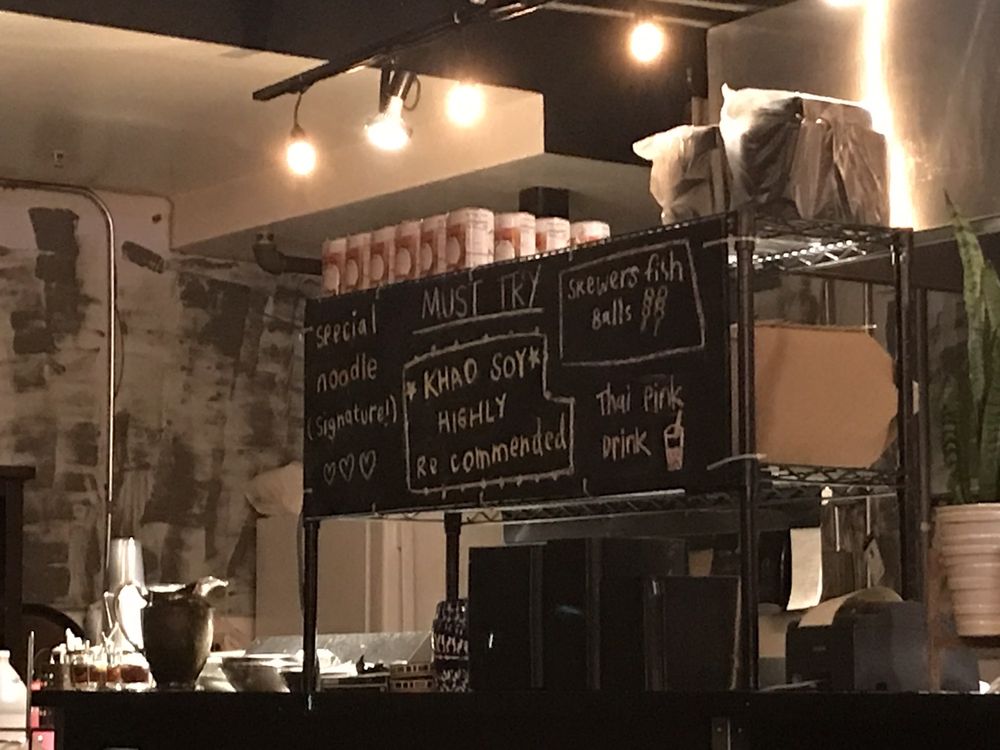 MUST TRY
special
noodle
(signature!)
KHAO SOY
HIGHLY
Recommended
Skewers fish
Balls
Thai Pink
Drink